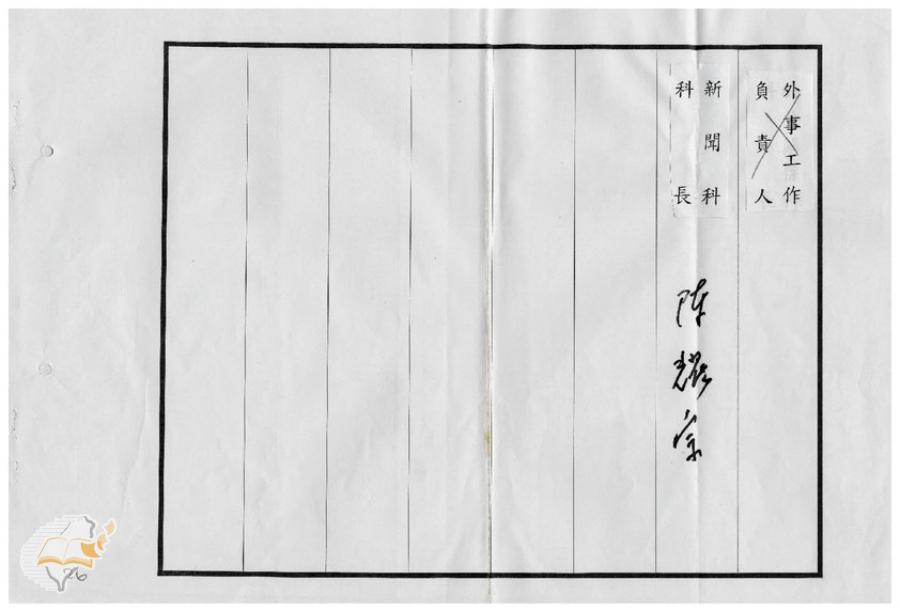 外事工作
負責人
新聞科
科長
陳耀宗
26